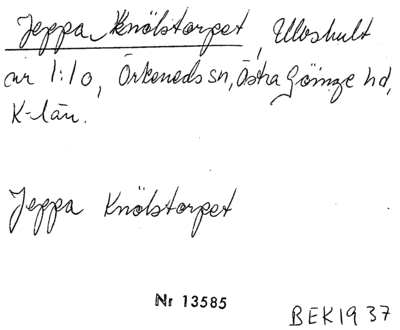 Jeppa Knölstorpet, Ulvshult
nr 1:10, Örkeneds sn, Östra Göinge hd,
K-län.
Jeppa Knölstorpet
Nr 13585
BEK1937